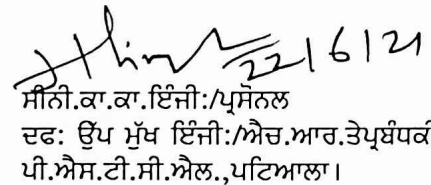 22/6/21
ਸੀਨੀ.ਕਾ.ਕਾ.ਇੰਜੀ:/ਪ੍ਰਸੋਨਲ
ਦਫ: ਉੱਪ ਮੁੱਖ ਇੰਜੀ:/ਐਚ.ਆਰ.ਤੇਪ੍ਰਬੰਧਕੀ
ਪੀ.ਐਸ.ਟੀ.ਸੀ.ਐਲ.,ਪਟਿਆਲਾ।